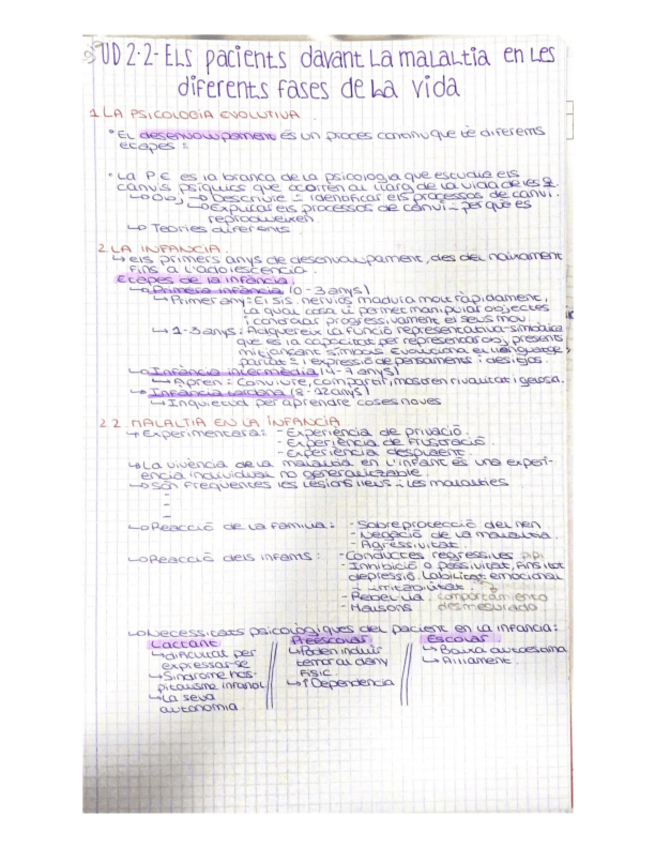 UD 2.2- Els pacients davant la malaltia en les
diferents fases de la vida
1 LA PSICOLOGIA EVOLUTIVA
• El desenvolupament és un procés continu que té diferents
etapes =
• La P.E és la branca de la psicologia que estudia els
canvis psíquics que ocorren al llarg de la vida de les
Obj → Descriure = identificar els processos de canvi.
→ Explicar els processos de canvi - perquè es
reprodueixen
→ Teories diferents
2 LA INFANCIA
→ els primers anys de desenvolupament, des del naixament
fins a l'adolescencia.
Etapes de la infància:
→ Primera infància (0-3 anys)
→ Primer any: El sis. nerviós madura molt ràpidament,
la qual cosa li permet manipular objectes
i controlar progressivament el seus mov.
→ 1-3 anys: Adquereix la funció representativa-simbòlica
que és la capacitat per representar obj. presents
mitjançant símbols. Evoluciona el llenguatge
parlat = i expressió de pensaments i desitjos.
→ Infància intermèdia (4-7 anys)
→ Apren = Conviure, compartir, mostren rivalitat i gelosia.
→ Infància tardana (8-12 anys)
→ Inquietud per aprendre coses noves
2.2. MALALTIA EN LA INFANCIA
→ Experimentarà: - Experiència de privació.
- Experiència de frustració.
- Experiència desplaent.
→ La vivència de la malaltia en l'infant és una experi-
ència individual no generalitzable
→ Són freqüentes les lesions lleus i les malalties
-
-
-
→ Reacció de la família: - Sobreprotecció del nen
- Negació de la malaltia.
- Agressivitat
→ Reacció dels infants: - Conductes regressives pipi
- Inhibició o passivitat, fins i tot
depressió. Labilitat emocional
i irritabilitat.
- Rebel·lia comportamiento
- Malsons desmesurado
→ Necessitats psicològiques del pacient en la infancia:
Lactant Preescolar Escolar
→ dificultat per → Poden induir → Baixa autoestima
expressar-se temor al deny → Aïllament.
→ Síndrome hos- físic
pitalisme infantil → ↑ Dependencia
→ La seva
autonomia